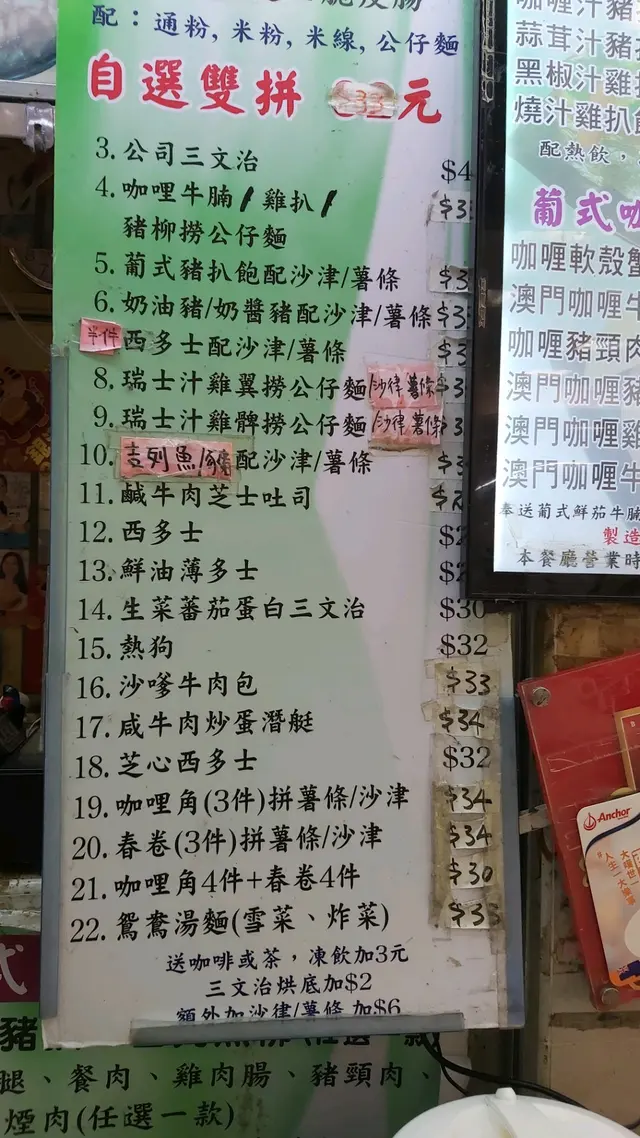 配：通粉，米粉，米線，公仔麵
自選雙拼 $33元
3. 公司三文治 $4
4. 咖哩牛腩/雞扒/ $3
豬柳撈公仔麵
5. 葡式豬扒飽配沙津/薯條 $3
6. 奶油豬/奶醬豬配沙津/薯條 $3
半件 西多士配沙津/薯條 $3
8. 瑞士汁雞翼撈公仔麵/沙律薯條 $3
9. 瑞士汁雞髀撈公仔麵/沙律薯條 $3
10. 吉列魚/豬 配沙津/薯條 $3
11. 鹹牛肉芝士吐司
12. 西多士 $2
13. 鮮油薄多士 $2
14. 生菜蕃茄蛋白三文治 $30
15. 熱狗 $32
16. 沙嗲牛肉包 $33
17. 咸牛肉炒蛋潛艇 $34
18. 芝心西多士 $32
19. 咖哩角(3件)拼薯條/沙津 $34
20. 春卷(3件)拼薯條/沙津 $34
21. 咖哩角4件+春卷4件 $30
22. 鴛鴦湯麵(雪菜、炸菜) $33
送咖啡或茶，凍飲加3元
三文治烘底加$2
額外加沙律/薯條 加$6
腿、餐肉、雞肉腸、豬頸肉、
煙肉(任選一款)
咖喱汁豬
蒜茸汁豬
黑椒汁雞
燒汁雞扒
配熱飲，
葡式咖
咖喱軟殼蟹
澳門咖喱牛
咖喱豬頸肉
澳門咖喱豬
澳門咖喱雞
澳門咖喱牛
奉送葡式鮮茄牛腩
製造
本餐廳營業時
Anchor